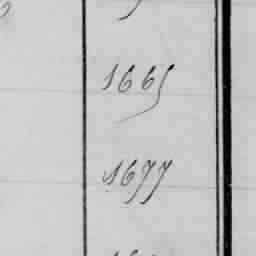 1665
1677